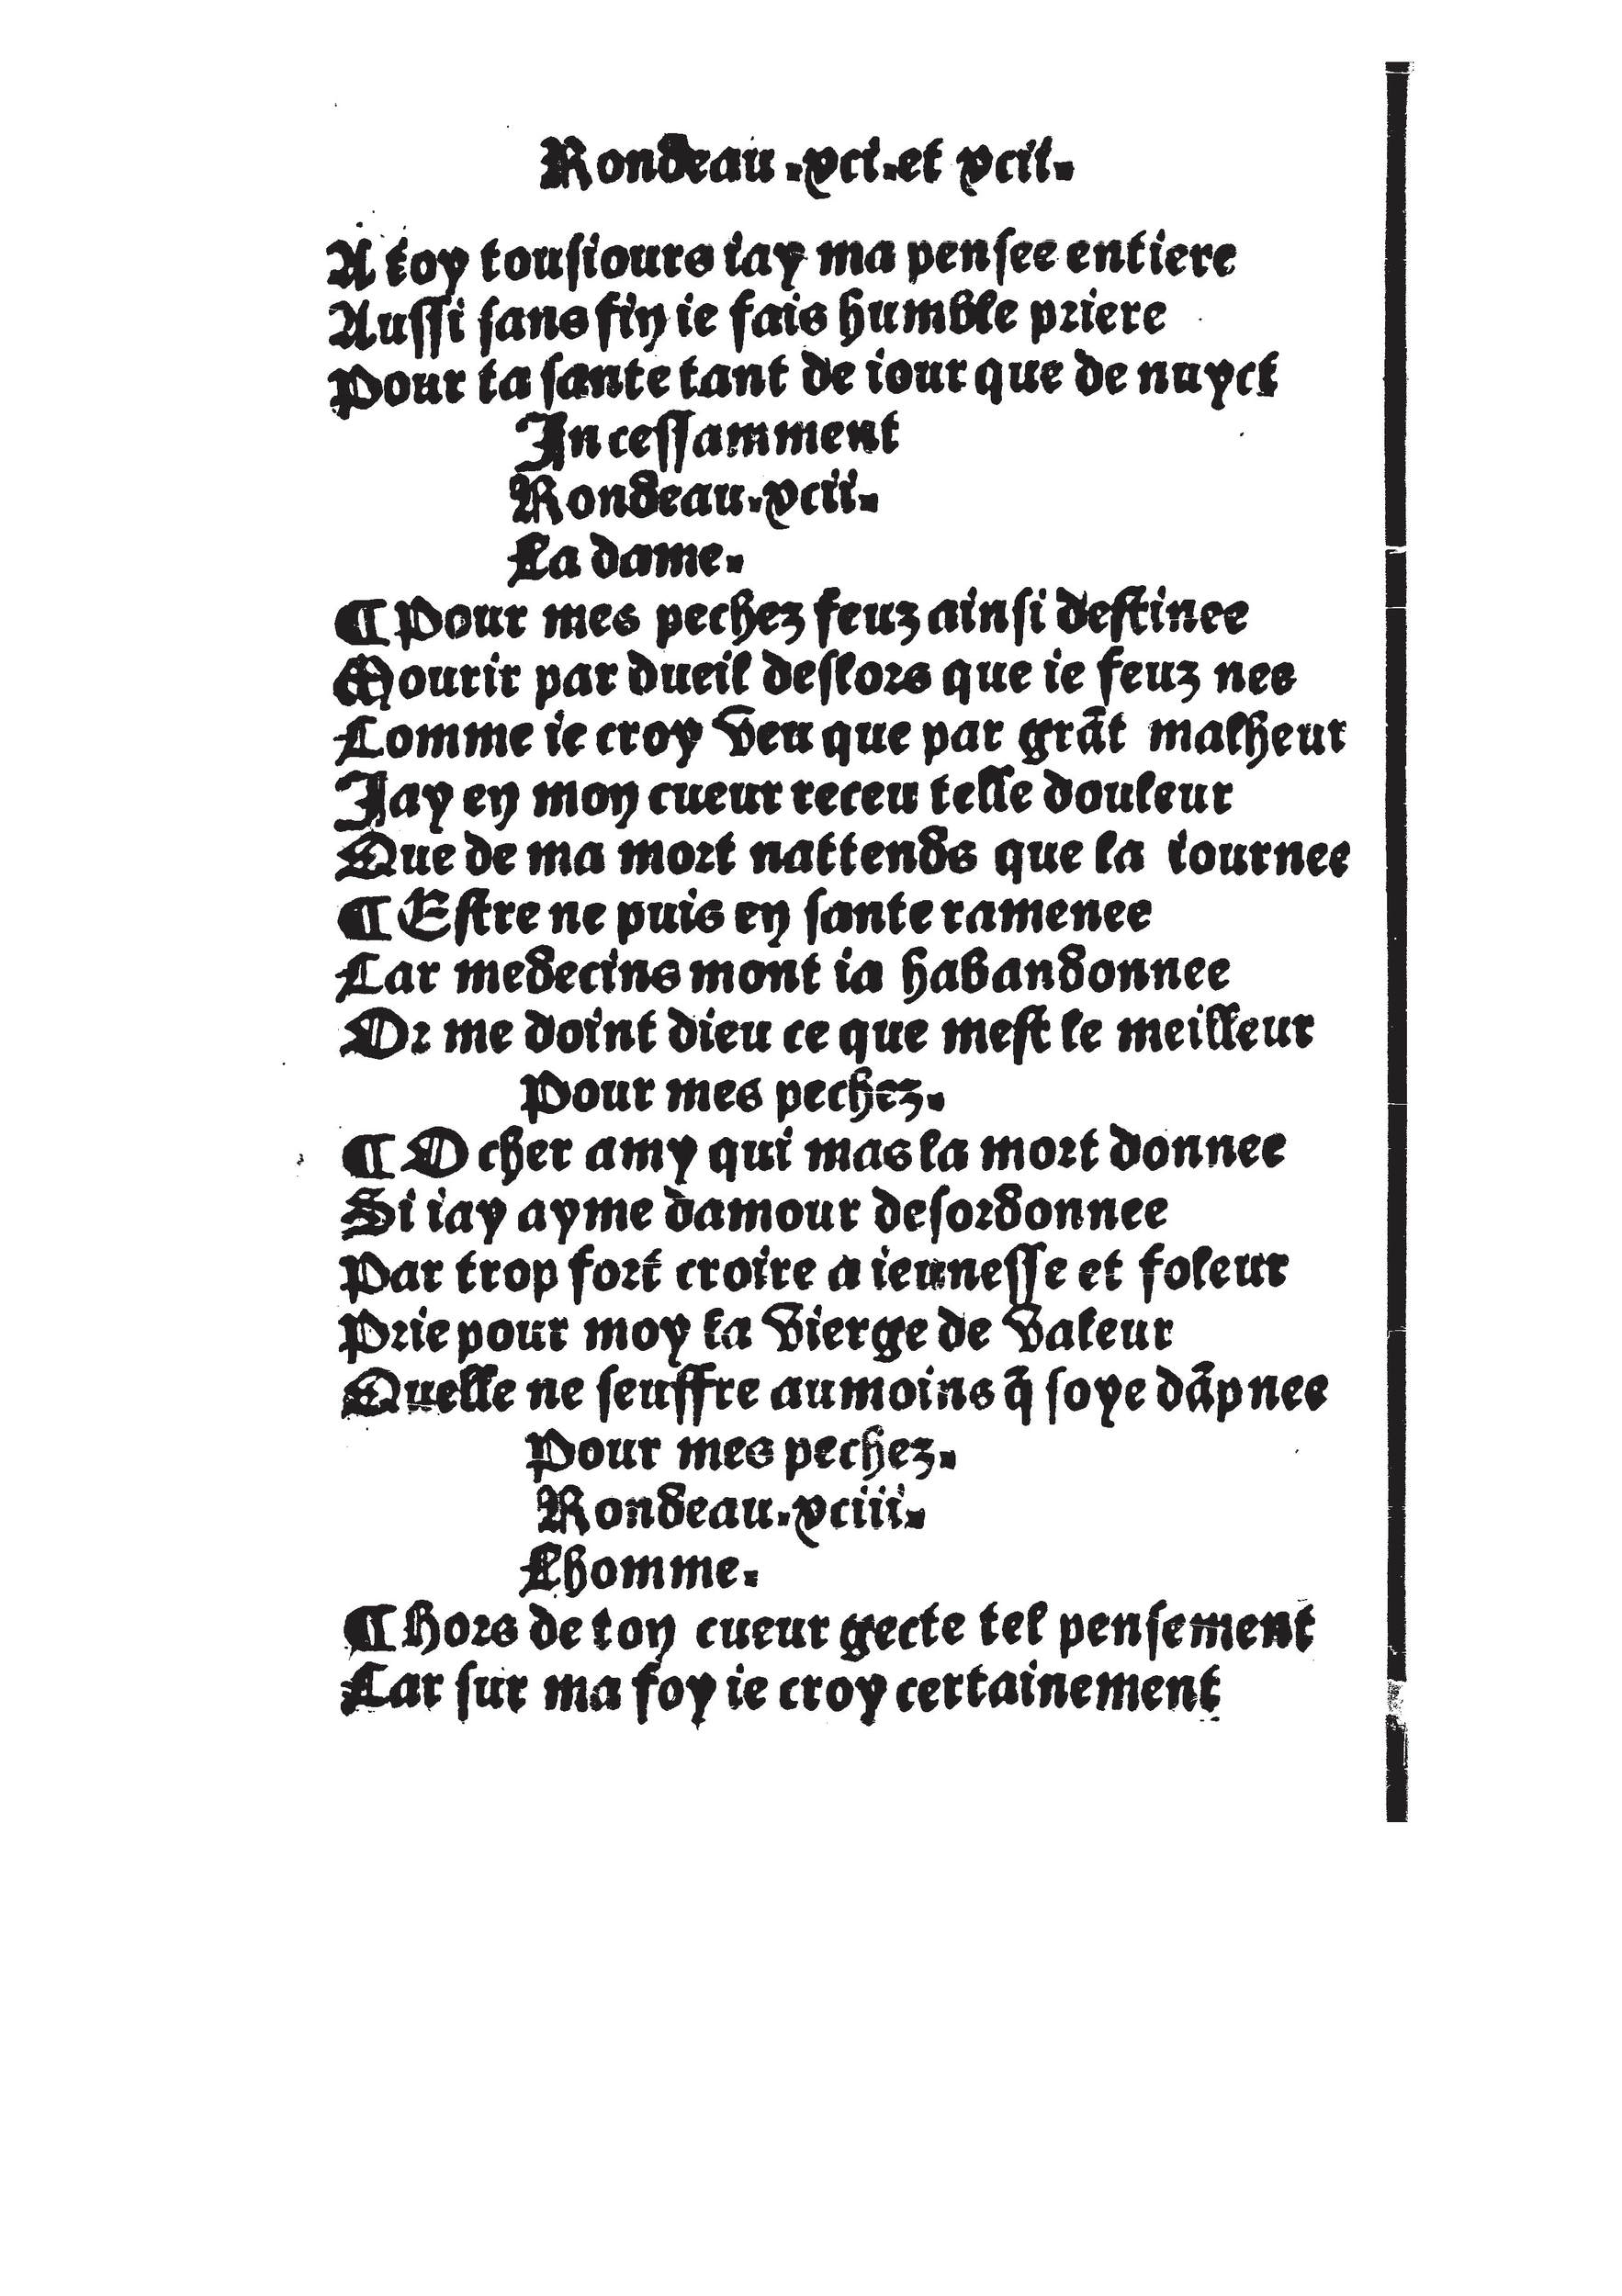 Rondeau .xci. et xcii.
A toy tousiours iay ma pensee entiere
Aussi sans fin ie fais humble priere
Pour ta sante tant de iour que de nuyct
Incessamment
Rondeau. xcii.
La dame.
¶ Pour mes pechez feuz ainsi destinee
Mourir par dueil deslors que ie feuz nee
Comme ie croy veu que par grãt malheur
Jay en mon cueur receu telle douleur
Que de ma mort nattends que la iournee
¶ Estre ne puis en sante ramenee
Car medecins mont ia habandonnee
Or me doint dieu ce que mest le meilleur
Pour mes pechez.
¶ O cher amy qui mas la mort donnee
Si iay ayme damour desordonnee
Par trop fort croire a ieunesse et foleur
Prie pour moy la vierge de valeur
Quelle ne seuffre aumoins q̃ soye dãpnee
Pour mes pechez.
Rondeau. xciii.
Lhomme.
¶ Hors de ton cueur gecte tel pensement
Car sur ma foy ie croy certainement